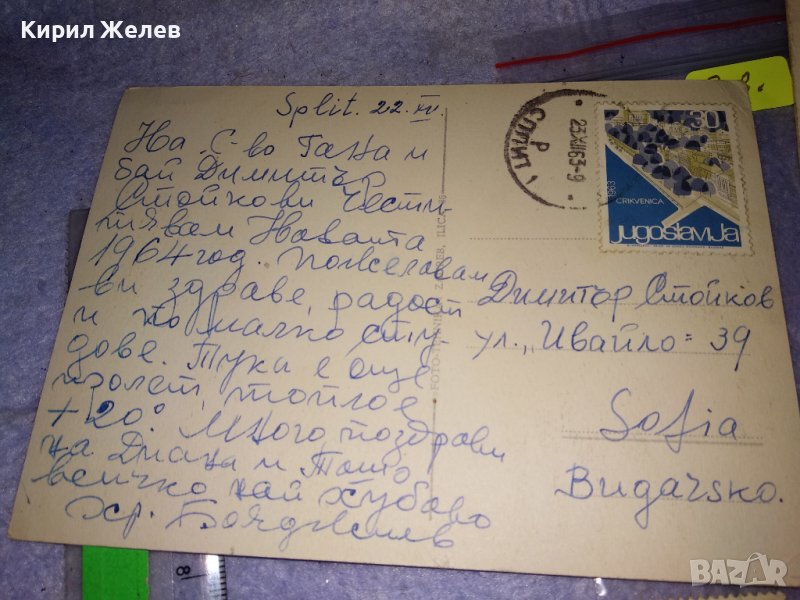 Кирил Желев
Split. 22. XII.
На С-во Гана и
бай Димитър
Стойкови Чести-
тявам Новата
1964 год. Пожелавам
ви здраве, радост
и по малко сту-
дове. Тука е още
пролет, топло е
+20°. Много поздрави
на Диана и Тошо
всичко най хубаво
Хр. Бояджиев
СПЛИТ
23.XII.63-9
30
1963
CRIKVENICA
jugoslavija
Димитър Стойков
ул. „Ивайло" = 39
Sofia
Bugarsko.
ZAGREB, ILICA
8
BAZAR
bazar.bg